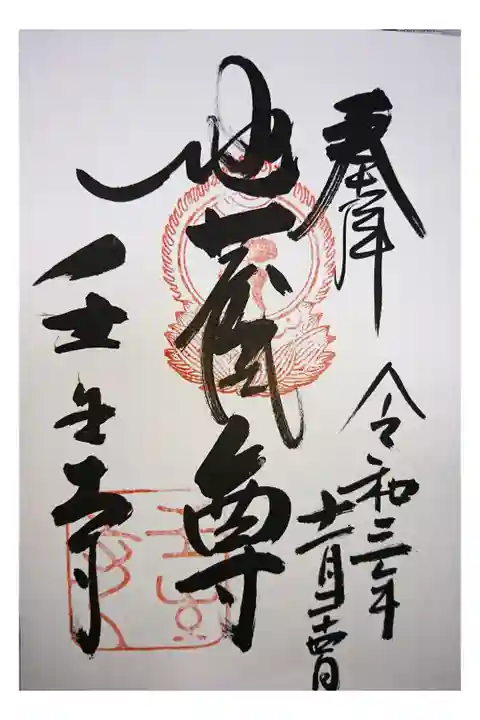 奉拝
令和三年
十一月二十四日
地蔵尊
壬生寺